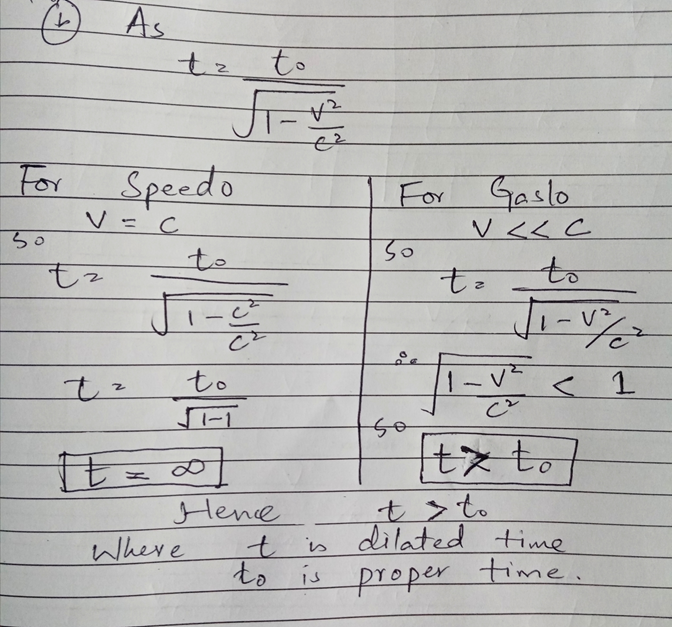 (1) As
t = t₀ / √(1 - v²/c²)
For Speedo
v = c
so
t = t₀ / √(1 - c²/c²)
t = t₀ / √(1-1)
t = ∞
For Gaslo
v << c
so
t = t₀ / √(1 - v²/c²)
∵ √(1 - v²/c²) < 1
so
t > t₀
Hence t > t₀
Where t is dilated time
t₀ is proper time.